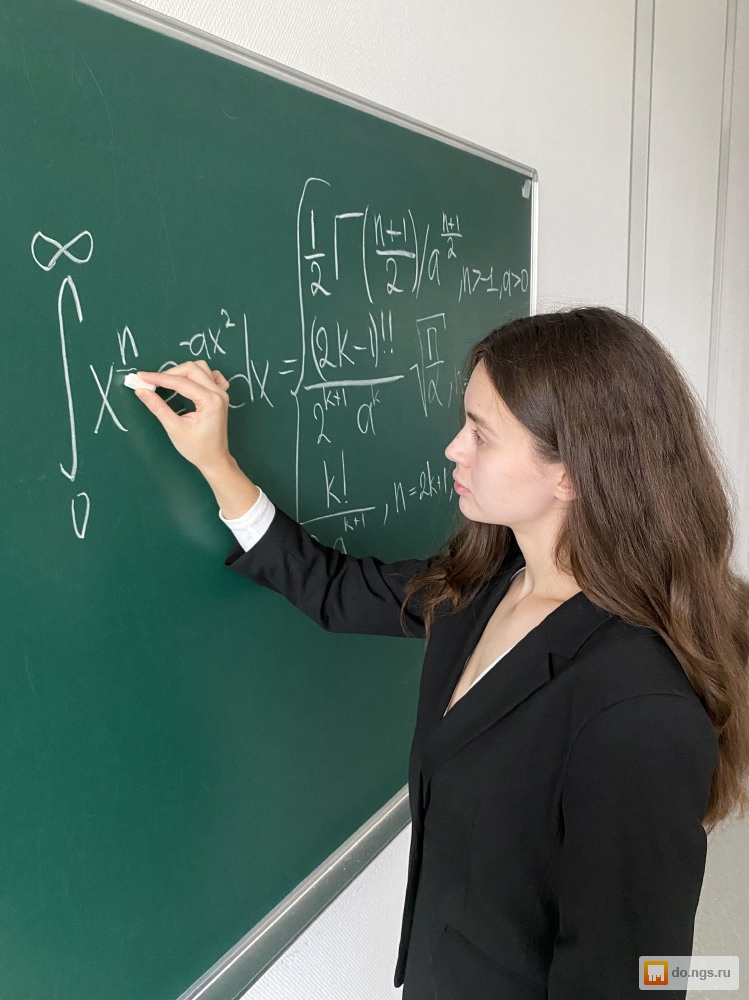 ∞
∫ xⁿ e^(-ax²) dx =
0
1/2 Γ((n+1)/2) / a^((n+1)/2), n>-1, a>0
(2k-1)!! / (2^(k+1) a^k) √(π/2), n
k! / a^(k+1), n=2k+1,
do.ngs.ru